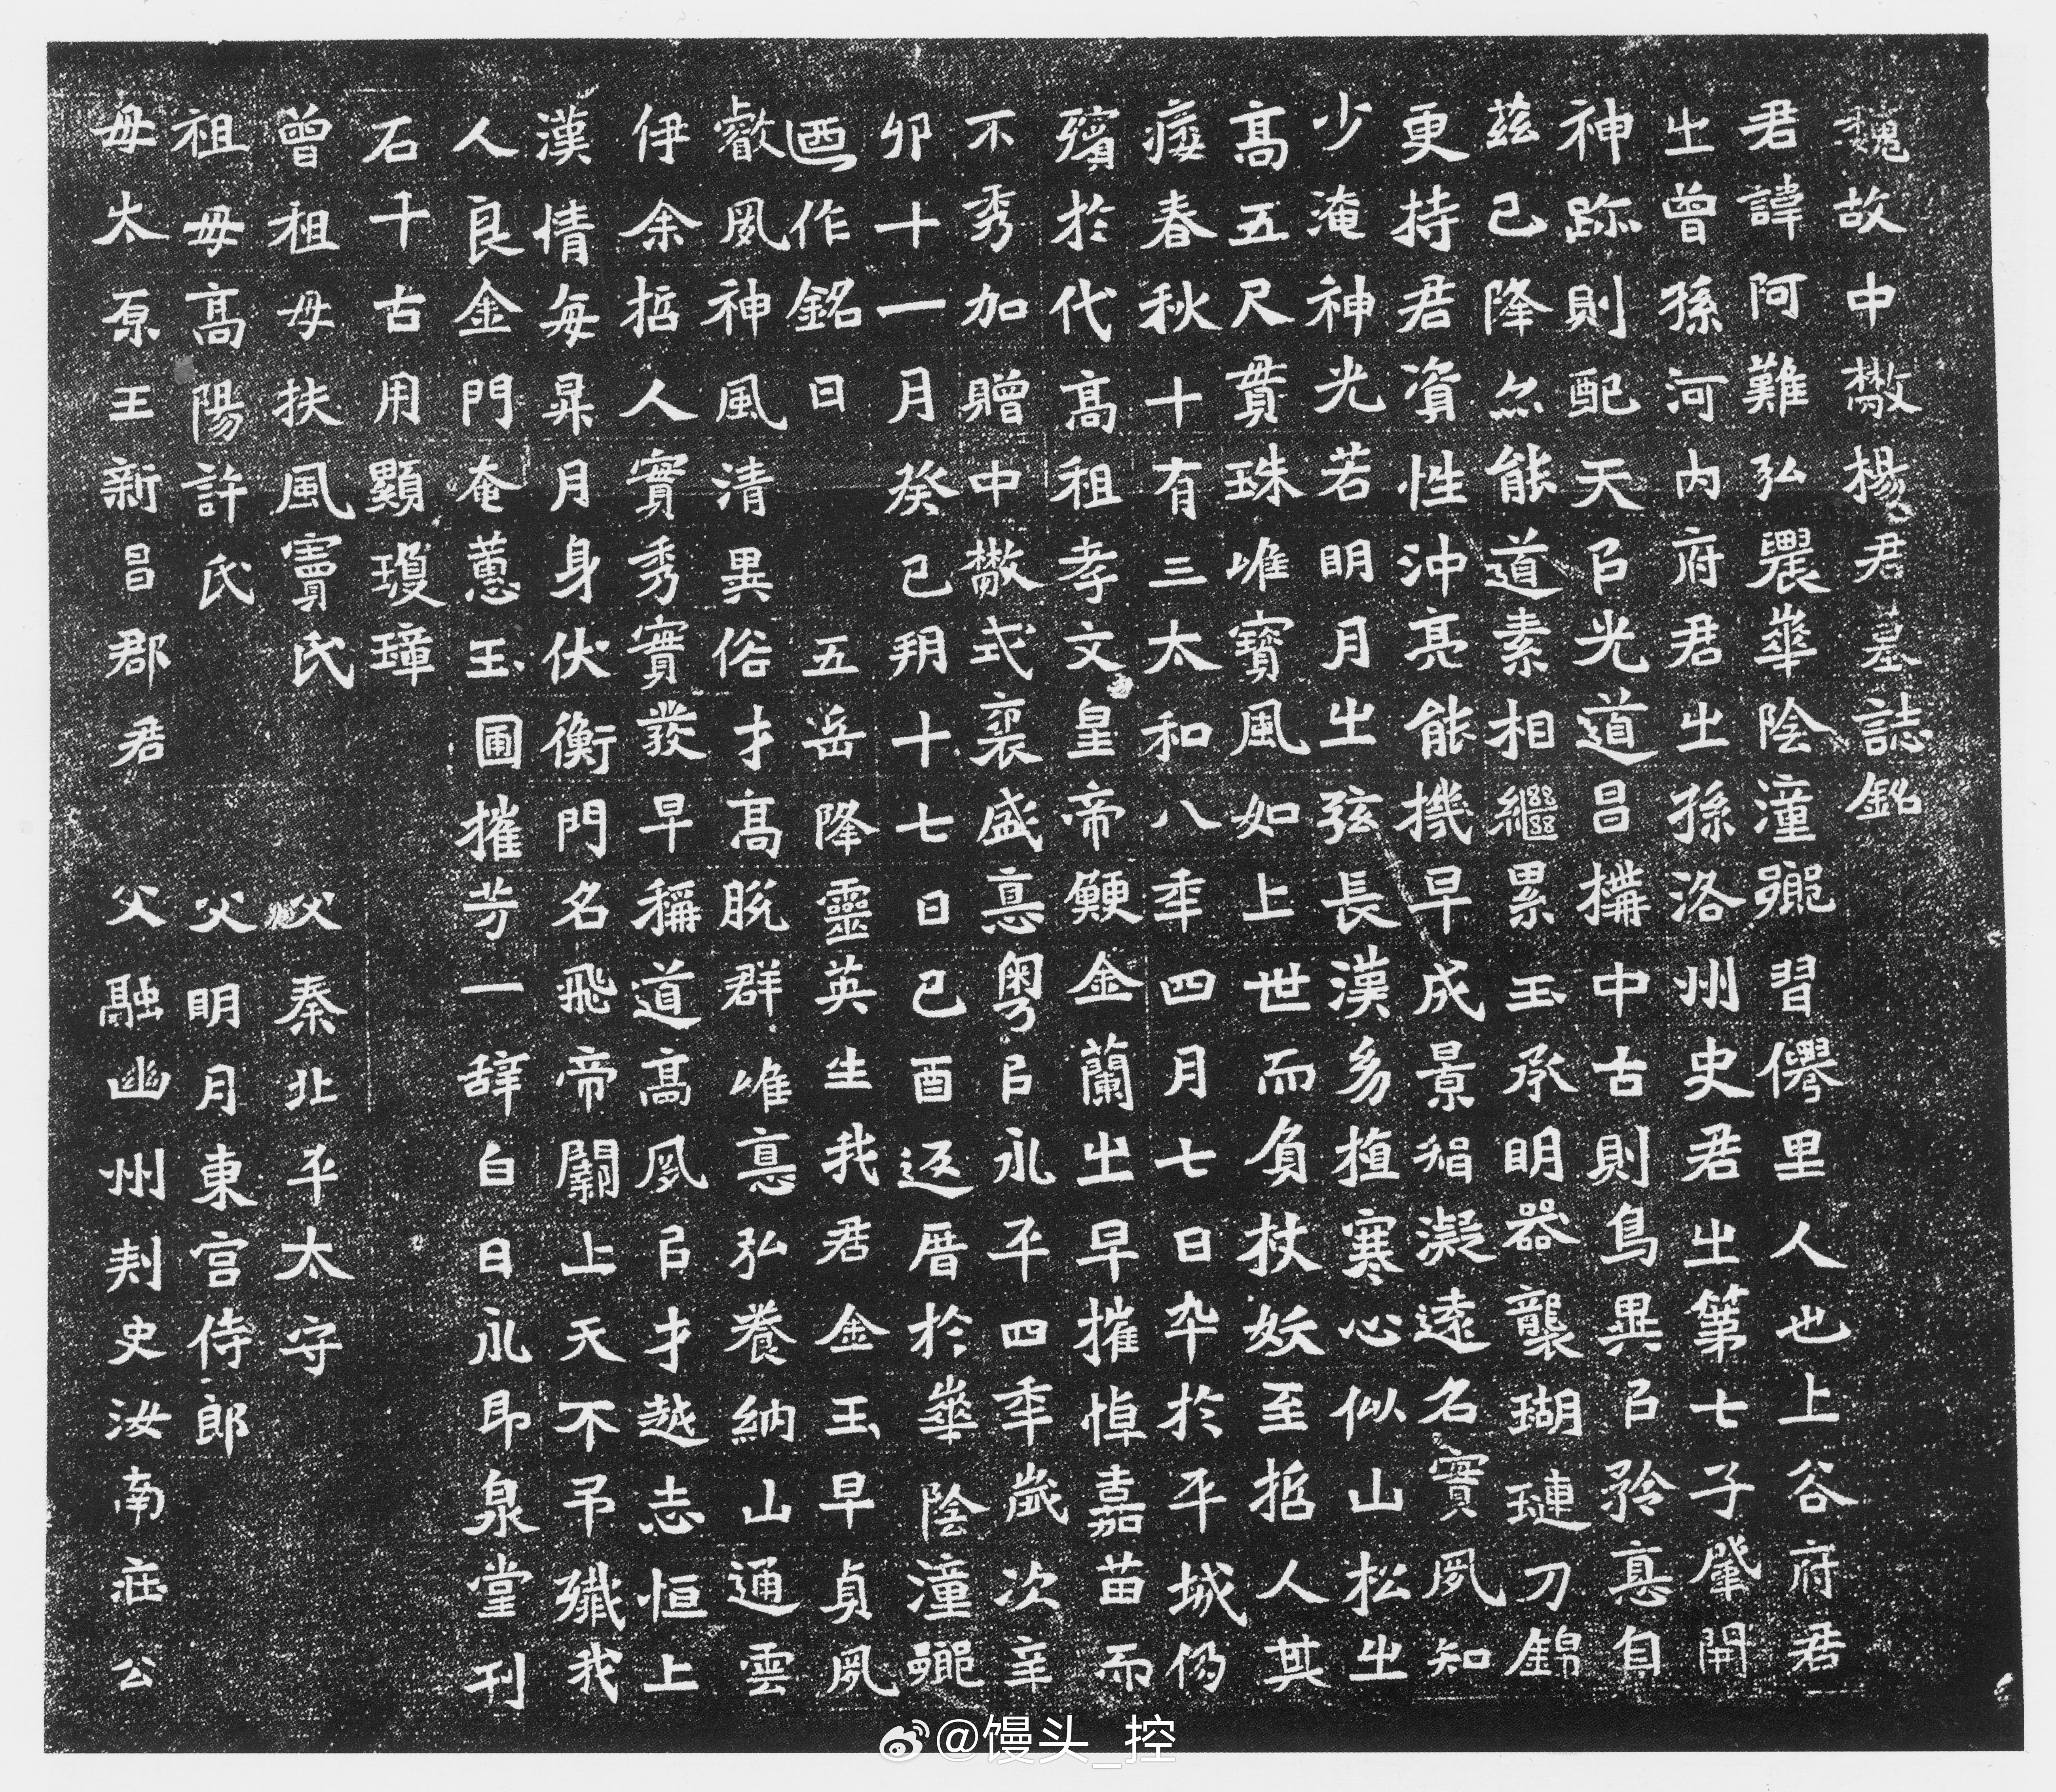 魏故中散楊君墓誌銘
君諱阿難弘農華陰潼鄉習僊里人也上谷府君
之曾孫河內府君之孫洛州史君之第七子肇開
神跡則配天以光道昌構中古則鳥異以矜惪自
茲已降繼能道素相繼累玉承明器襲瑚璉刀錦
更持君資性沖亮能機早成景招凝遠名實夙知
少淹神光若明月之弦長漢易植寒心似山松之
高五尺貫珠唯寶風如上世而負杖妖至哲人其
痿春秋十有三太和八年四月七日卒於平城仍
殯於代高祖孝文皇帝鯁金蘭之早摧悼嘉苗而
不秀加贈中散式褒盛惪粵以永平四年歲次辛
卯十一月癸巳朔十七日己酉返厝於華陰潼鄉
迺作銘曰 五岳降靈英生我君金玉早貞夙
叡風神風清異俗才高脫群唯惪弘養納山通雲
伊余哲人實秀實發早稱道高夙以才越志恒上
漢情每昇月身伏衡門名飛帝闕上天不弔殲我
人良金門奄蕙玉圃摧芳一辞白日永即泉堂刊
石千古用顯瓊璋
曾祖母扶風竇氏 父秦北平太守
祖母高陽許氏 父明月東宮侍郎
母太原王新昌郡君 父融幽州刺史汝南莊公
@馒头_控